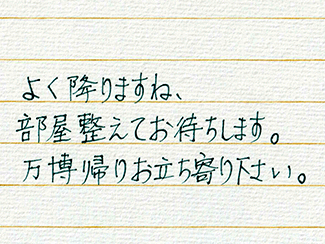 よく降りますね、
部屋整えてお待ちします。
万博帰りお立ち寄り下さい。